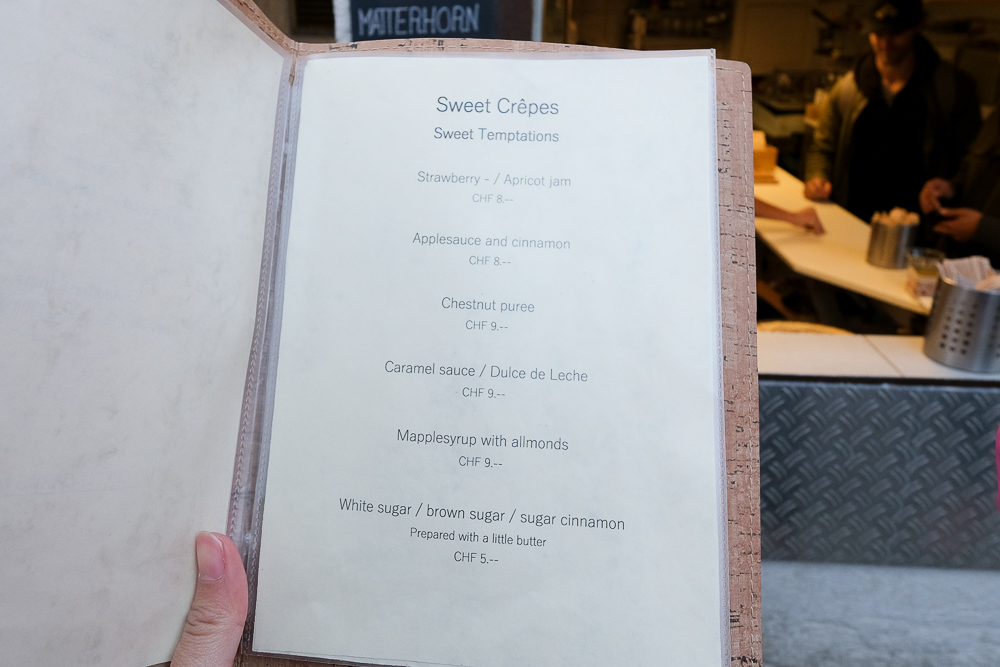 MATTERHORN
Sweet Crêpes
Sweet Temptations
Strawberry - / Apricot jam
CHF 8.--
Applesauce and cinnamon
CHF 8.--
Chestnut puree
CHF 9.--
Caramel sauce / Dulce de Leche
CHF 9.--
Mapplesyrup with allmonds
CHF 9.--
White sugar / brown sugar / sugar cinnamon
Prepared with a little butter
CHF 5.--